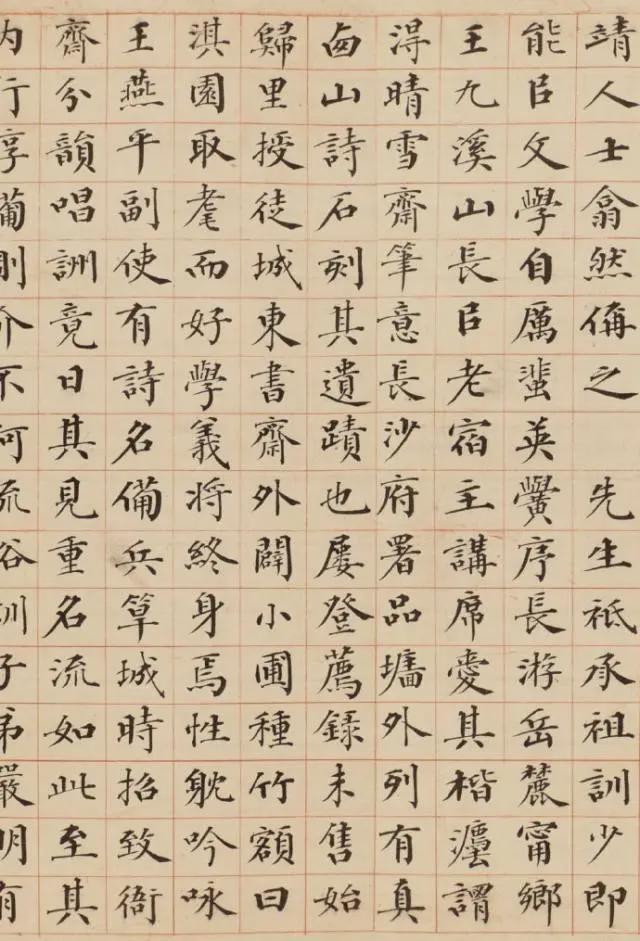 靖人士翕然偁之先生祗承祖訓少即
能㠯文學自厲蜚英黌序長游岳麓甯鄉
王九溪山長㠯老宿主講席愛其楷灋謂
淂晴雪齋筆意長沙府署品墉外列有真
卥山詩石刻其遺蹟也屢登薦録未售始
歸里授徒城東書齋外闢小圃種竹額曰
淇園取耄而好學義將終身焉性躭吟咏
王燕平副使有詩名備兵筸城時招致衙
齋分韻唱詶竟日其見重名流如此至其
内行則介不阿流俗訓子弟嚴明有